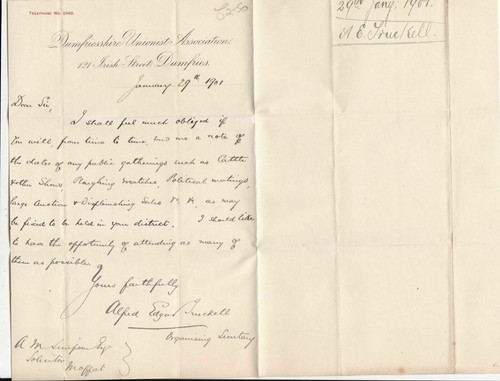 TELEPHONE No.
Dumfriesshire Unionist Association.
121 Irish Street, Dumfries.
January 29th 1901
Dear Sir,
I shall feel much obliged if
you will, from time to time, send me a note of
the dates of any public gatherings such as Cattle
& other Shows, Ploughing Matches, Political meetings,
large Auction & Displenishing Sales &c. &c. as may
be fixed to be held in your district. I should like
to have the opportunity of attending as many of
them as possible.
Yours faithfully
Alfred Edgar Truckell
Organising Secretary
A M Simpson Esq
Solicitor
Moffat
29th Jany. 1901.
A. E. Truckell.